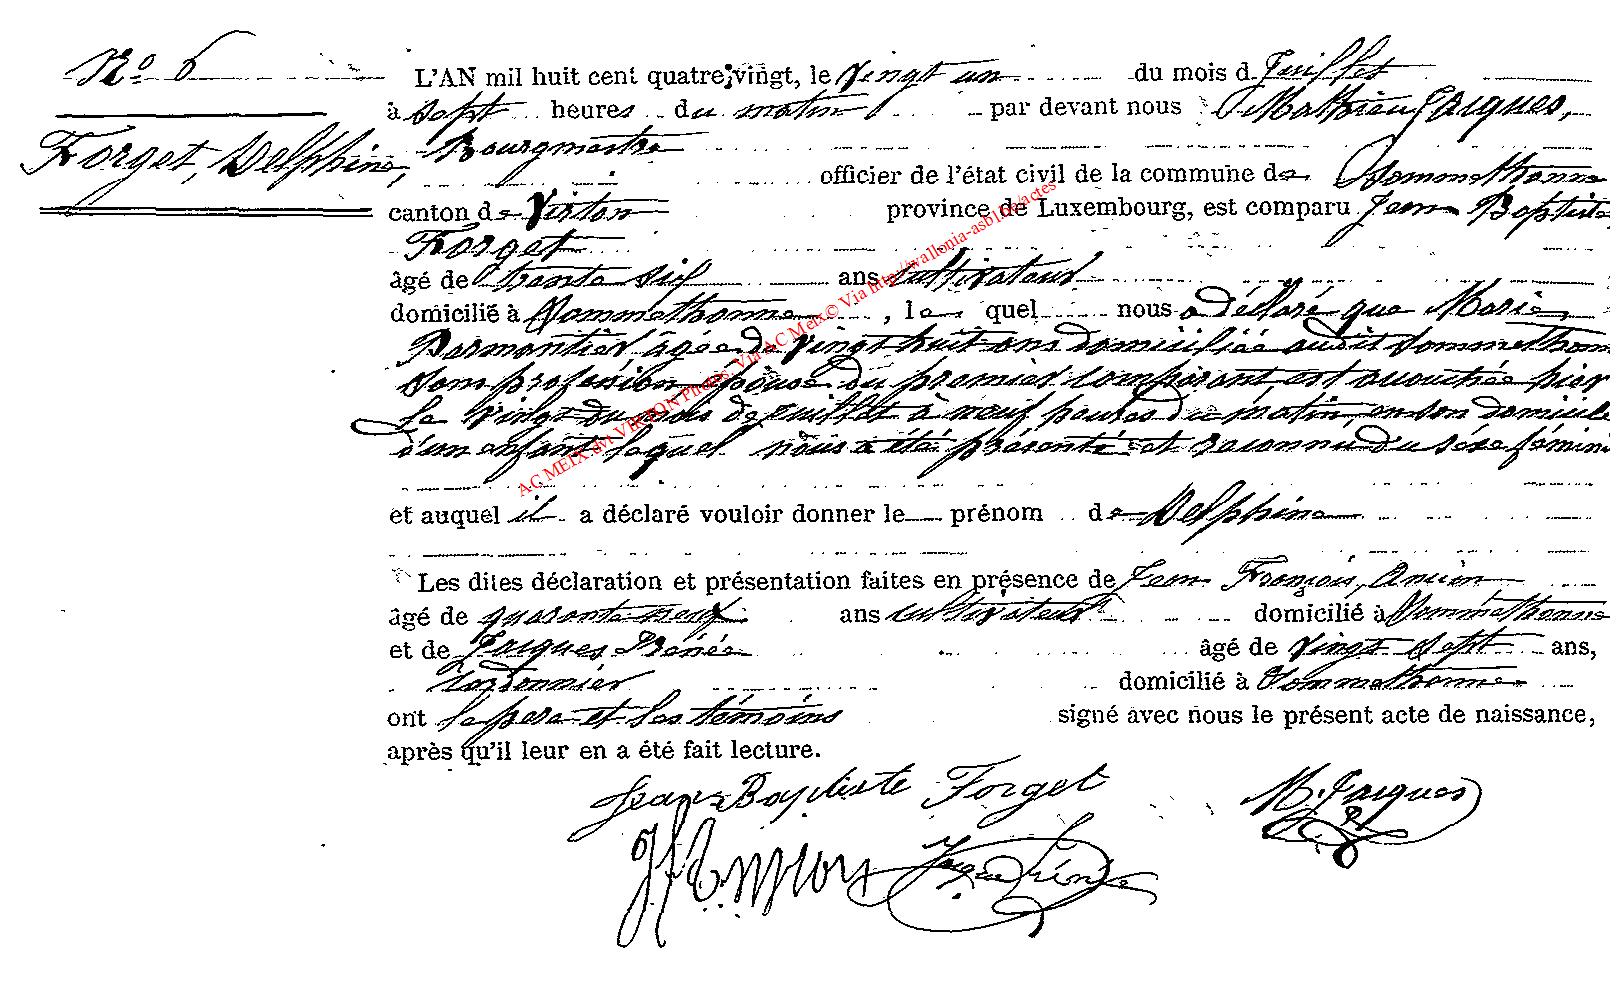 No 6
L'AN mil huit cent quatre-vingt, le vingt un du mois d Juillet
à sept heures du matin par devant nous Mathieu Jacques,
Forget, Delphine,
Bourgmestre
officier de l'état civil de la commune de Sommethonne
canton de Virton province de Luxembourg, est comparu Jean Baptiste
Forget
âgé de trente six ans cultivateur
domicilié à Sommethonne, le quel nous a déclaré que Marie
Parmentier âgée de vingt huit ans domiciliée audit Sommethonne
sans profession épouse du premier comparant, est accouchée hier
le vingt du mois de juillet à neuf heures du matin, en son domicile
d'un enfant lequel nous a été présenté et reconnu du sexe féminin
et auquel il a déclaré vouloir donner le prénom de Delphine
Les dites déclaration et présentation faites en présence de Jean François,
âgé de quarante neuf ans cultivateur domicilié à Sommethonne
et de Jacques Zénée âgé de vingt sept ans,
Cordonnier domicilié à Sommethonne
ont le père et les témoins signé avec nous le présent acte de naissance,
après qu'il leur en a été fait lecture.
Jean Baptiste Forget M. Jacques
AC MEIX dvt VIRTON Photos: Via AC Meix© Via http://wallonia-asbl.be/actes